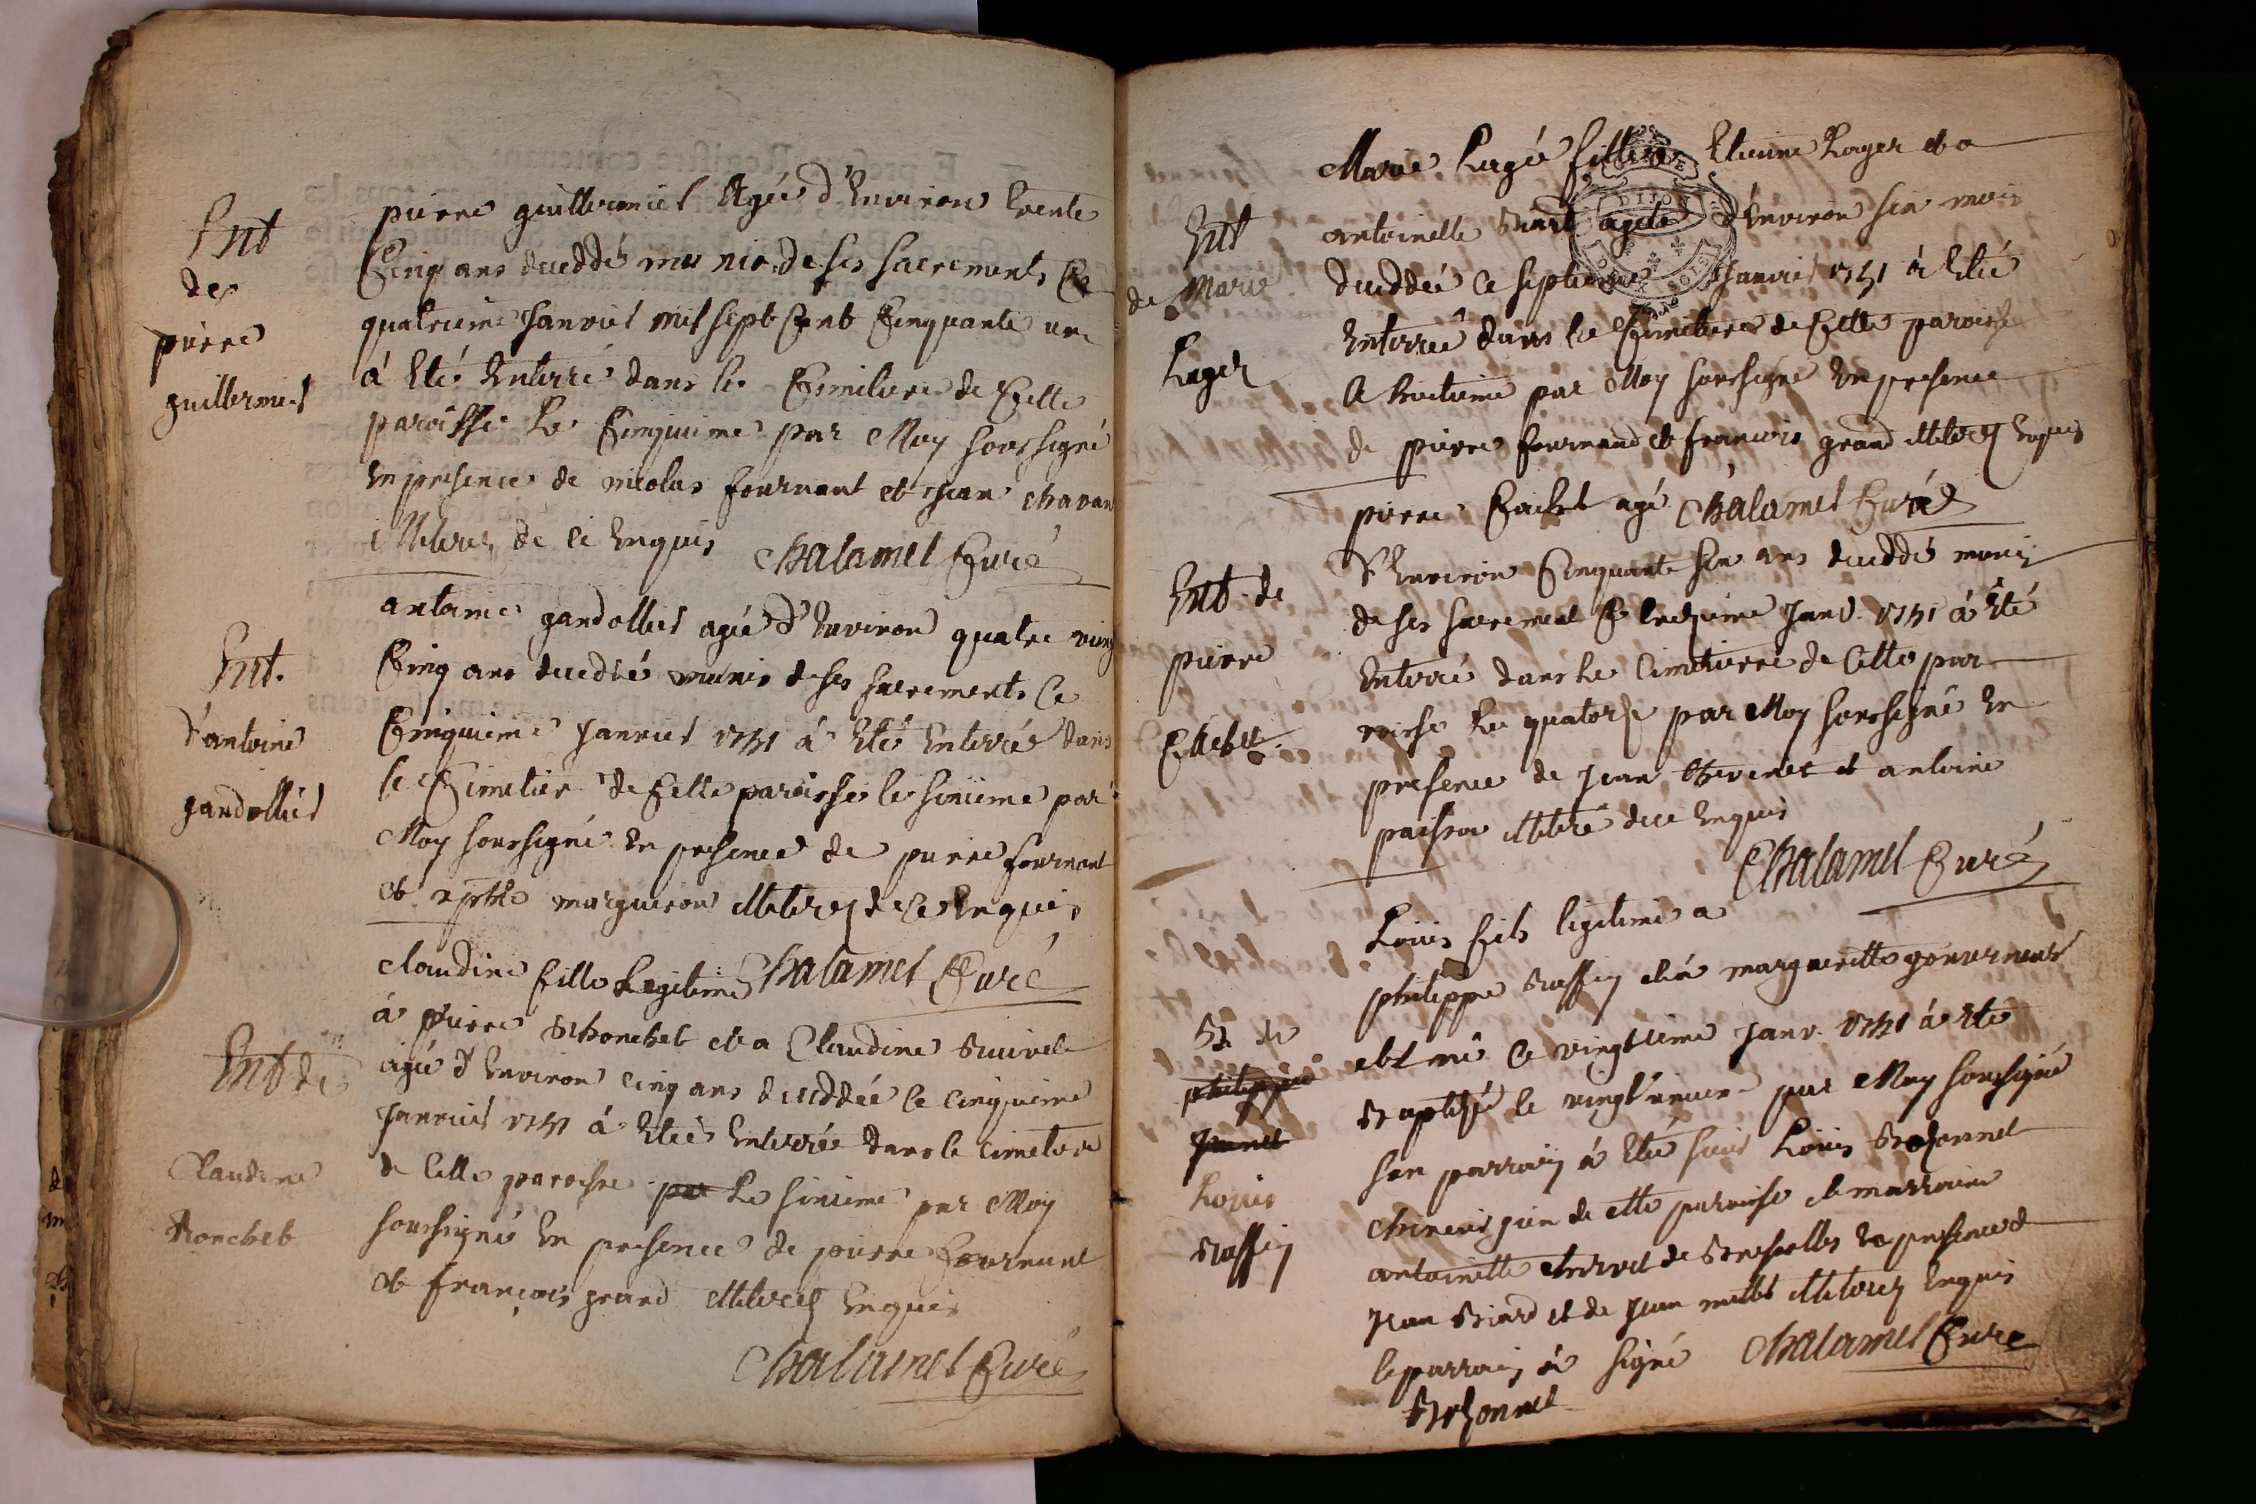 Ent
de
pierre
guillermet
pierre guillermet Agée d'Environ trente
Cinq ans deceddé munis de ses sacrements Ce
quatrieme Janviet mil sept Cent Cinquante un
á Eté Enterré dans le Cimitiere de Cette
paroisse Le Cinquieme par Moy soussigné
En presence de nicolas fournant et Jean chavan
illiterez de ce Enquis Chalamel Curé
Ent.
d'antoine
gandolliet
antoine gandolliet agée d'Environ quatre ving
Cinq ans deceddé munis de ses sacrements Ce
Cinquieme Janviet 1751 á Eté Enterré dans
le Cimetier de Cette paroisse le sixieme par
Moy soussigné En presence de pierre fournant
et margueron illiterez de Ce Enquis
Chalamel Curé
Ent de
Claudine
Roncheb
claudine fille Legitime
á pierre et a Claudine
agée d'Environ cinq ans deceddée le cinquieme
Janviet 1751 á Etée Enterrée dans le cimetiere
de Cette paroisse par Le sixieme par Moy
soussigné En presence de pierre fournant
et françois grand illiterez Enquis
Chalamel Curé
Ent
de Marie
Lager
Marie Lagée fille a Etienne Lager et a
antoinette agée d'Environ six mois
deceddée Ce septieme Janviet 1751 á Etée
Enterrée dans le Cimitiere de Cette paroisse
Le huitieme par Moy soussigné En presence
de pierre fournand et francois grand illiterez Enquis
Chalamel Curé
Ent de
pierre
pierre agé
d'Environ Cinquante six ans deceddé muni
de ses sacrement Ce treizieme Janv. 1751 á Eté
Enterré dans Le Cimetierre de Cette par
roisse Le quatorze par Moy soussigné En
presence de Jean thevenet et antoine
illiteré de ce Enquis
Chalamel Curé
B. de
philippe
Louis
Raffin
Louis fils legitime a
philippe Raffin et á margueritte gouverneur
est né Ce vingtieme Janv. 1751 á Eté
Baptisé le vingt unieme par Moy soussigné
son parrain á Eté sieur Louis Brezonnet
chirurgien de cette paroisse et marraine
antoinette de En presence d
Jean Biard et de Jean illiterez Enquis
le parrain á signé Chalamel Curé
Brezonnet
DIJON